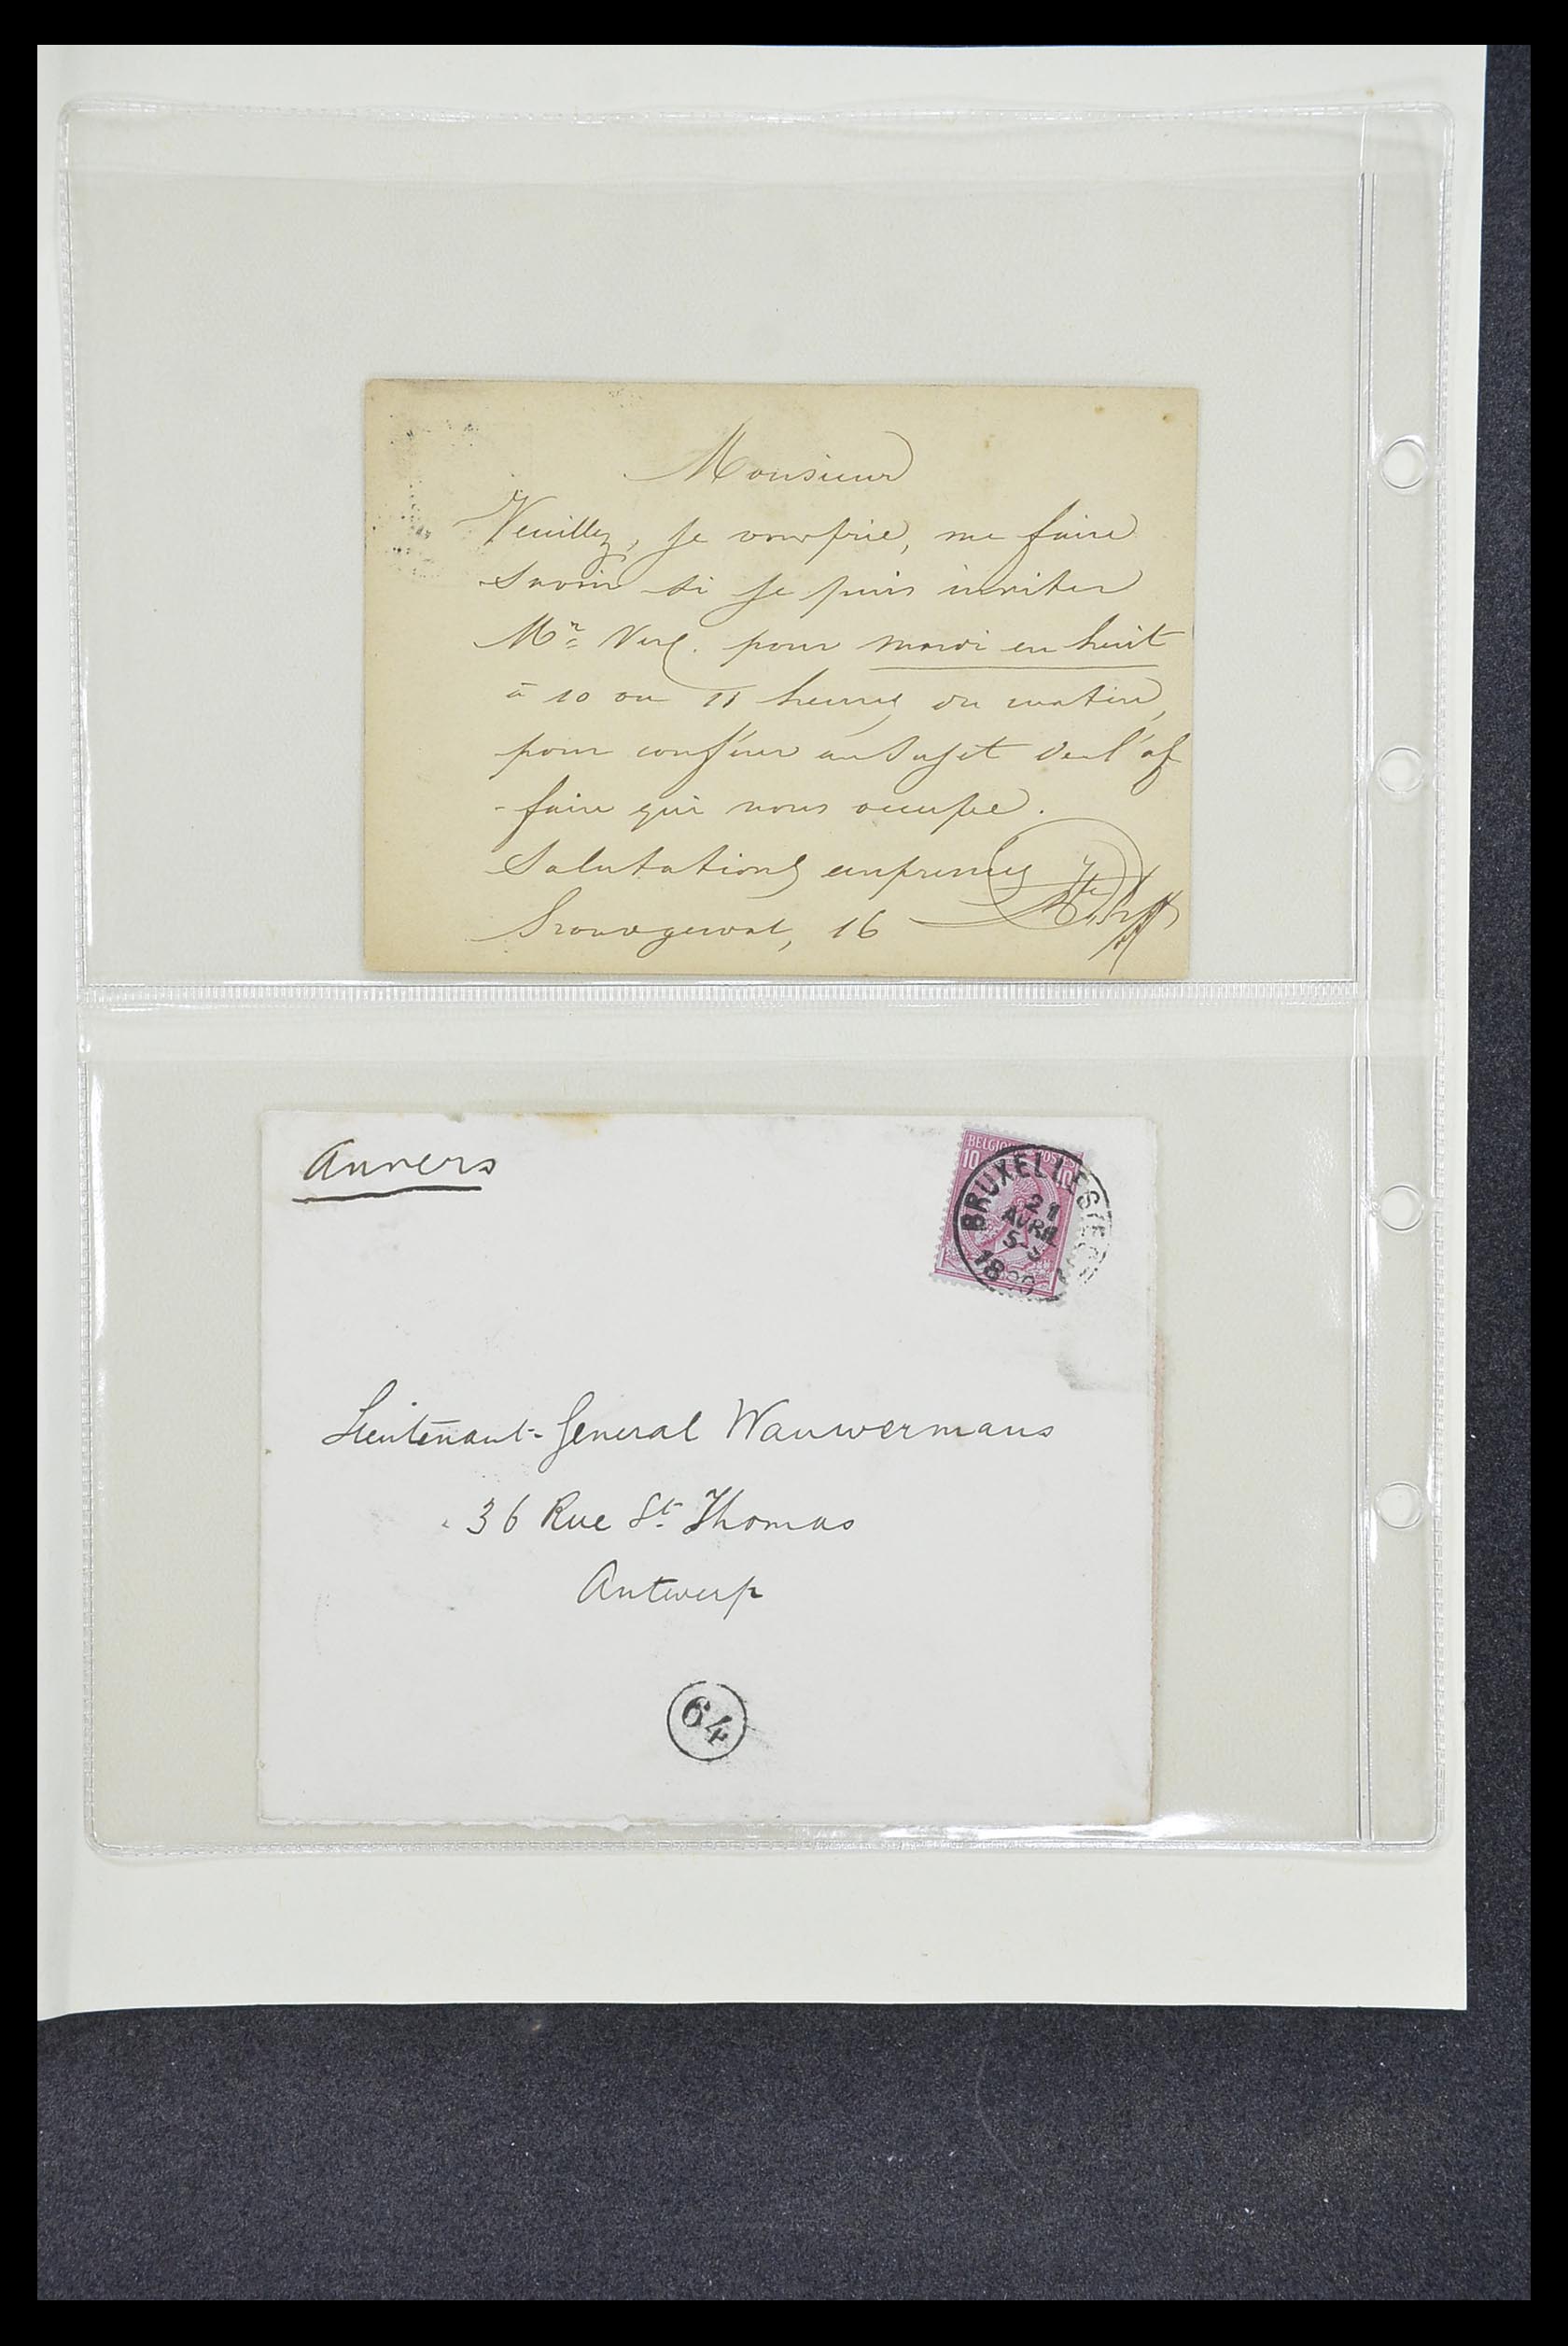 Monsieur
Veuillez, je vous prie, me faire
Savoir si je puis inviter
Mr Verl. pour mardi en huit
à 10 ou 11 heures du matin,
pour conférer au Sujet de l'af
-faire qui nous occupe.
Salutations empressées
16
Anvers
BELGIQUE POSTES
10 10
BRUXELLES
21
AVRIL
5-
18
Lieutenant-General Wauwermans
36 Rue St Thomas
Antwerp
64